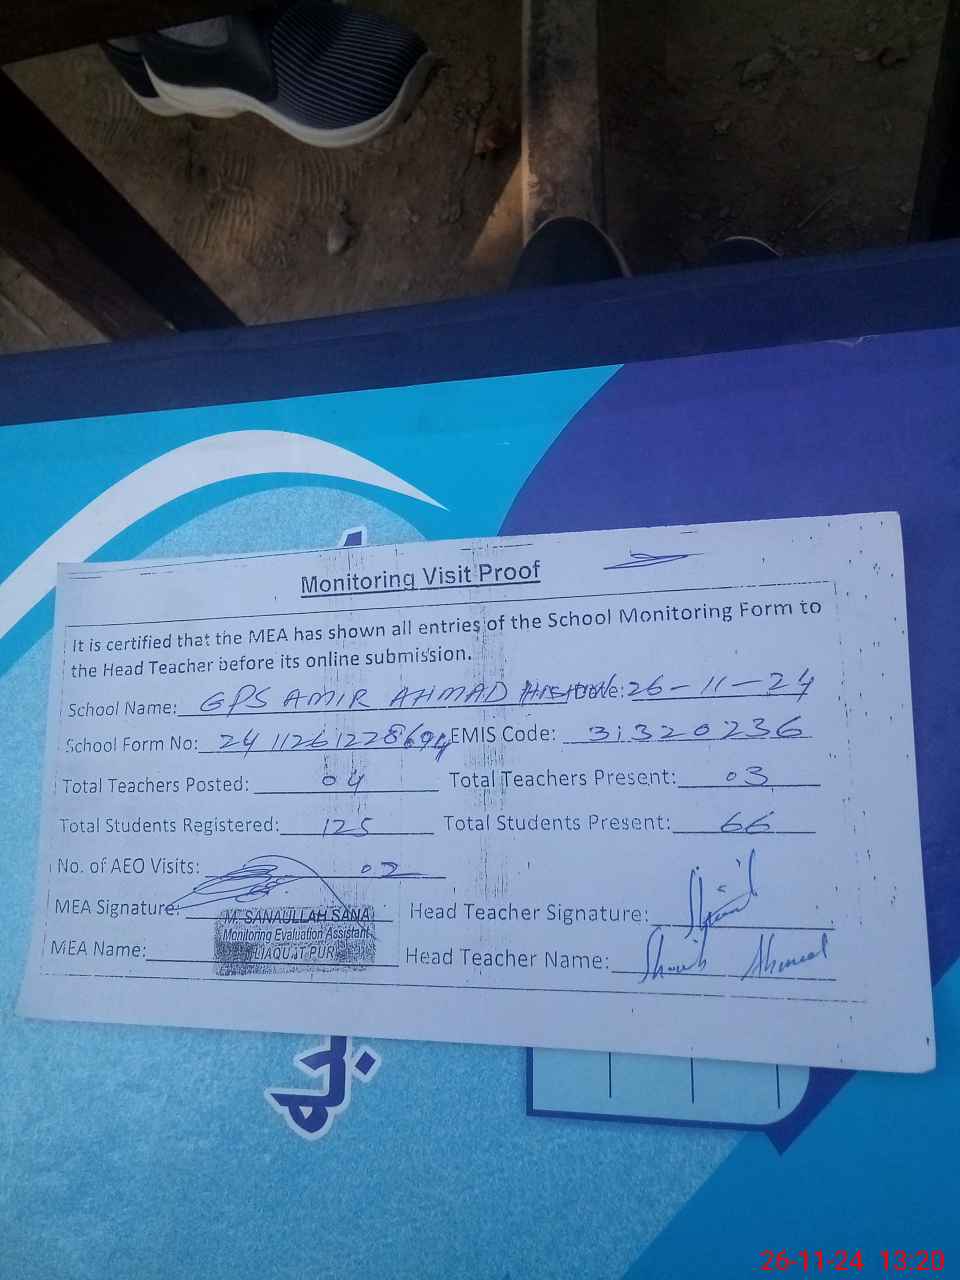 Monitoring Visit Proof
It is certified that the MEA has shown all entries of the School Monitoring Form to
the Head Teacher before its online submission.
School Name: GPS AMIR AHMAD Date: 26-11-24
School Form No: 241126122869 EMIS Code: 31320236
Total Teachers Posted: 04 Total Teachers Present: 03
Total Students Registered: 125 Total Students Present: 66
No. of AEO Visits: 02
MEA Signature: Head Teacher Signature:
M. SANAULLAH SANA
Monitoring Evaluation Assistant
LIAQUAT PUR
MEA Name: Head Teacher Name: Ahmed
26-11-24 13:20